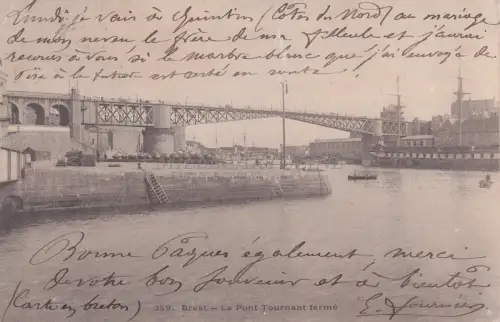 Lundi je vais à Quintin (Côtes du Nord) au mariage
de mon neveu le frère de ma filleule et j'aurai
recours à vous si le marbre blanc que j'ai envoyé de
à la est en vente
Bonne Pâques également, merci
de votre bon souvenir et à bientôt
(Carte en breton) 359. Brest - Le Pont Tournant fermé E. Fournier